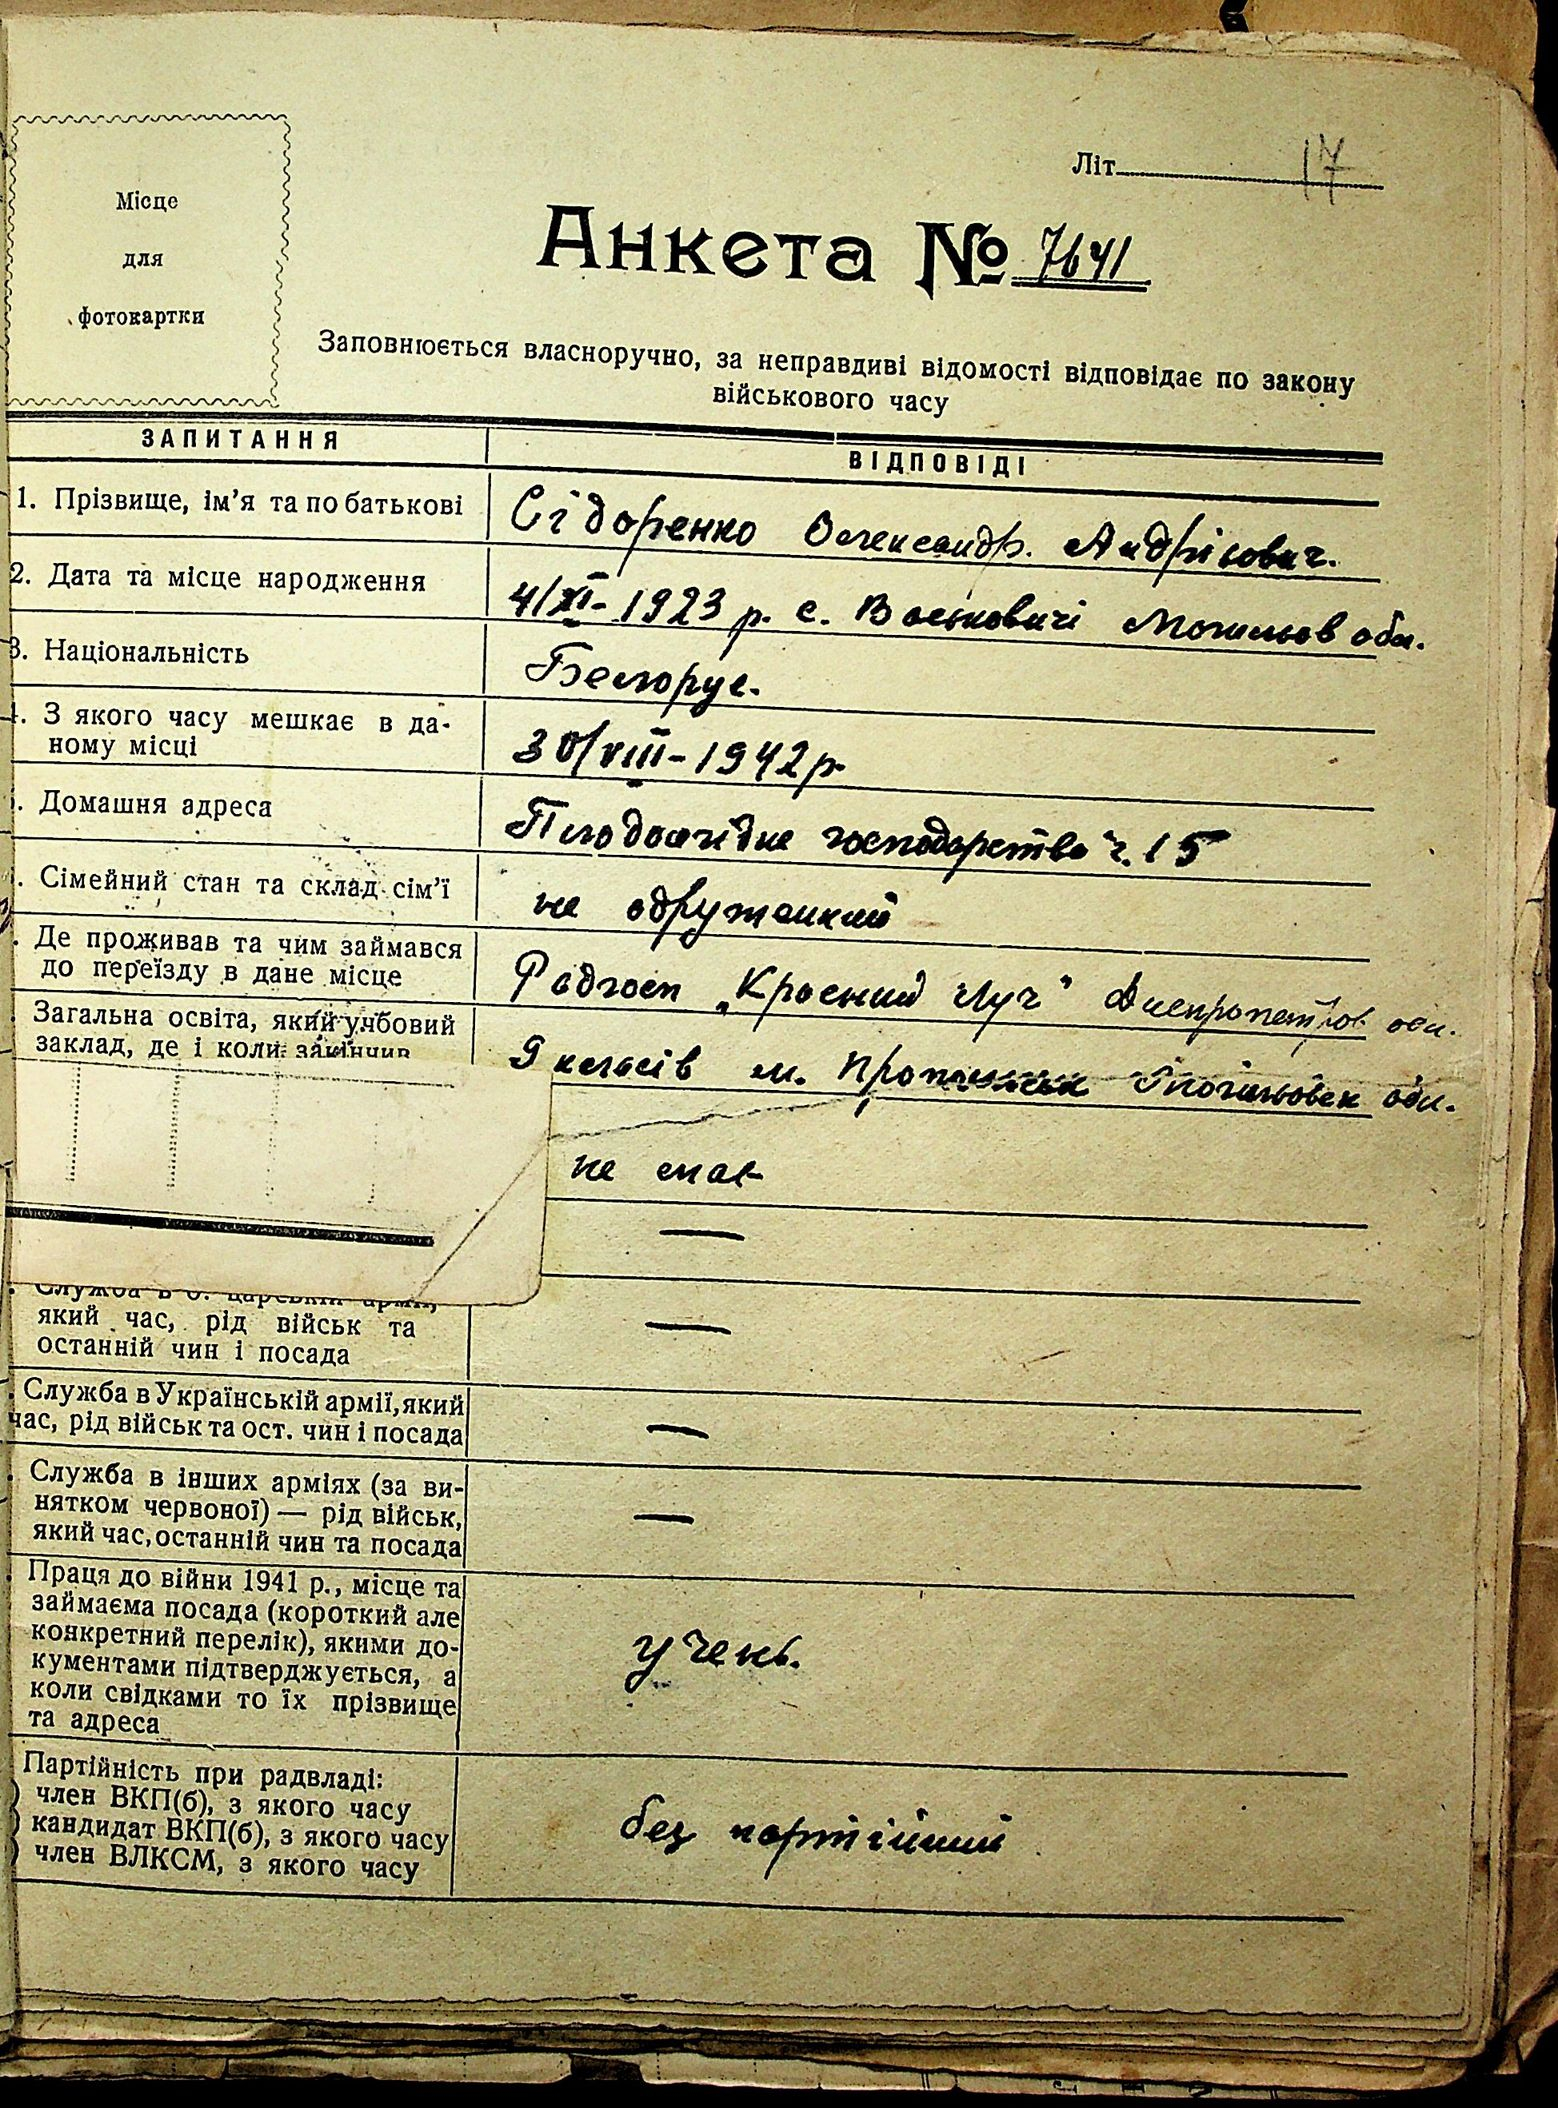 Літ. 17
Місце
для
фотокартки
Анкета № 7641
Заповнюється власноручно, за неправдиві відомості відповідає по закону
військового часу
ЗАПИТАННЯ ВІДПОВІДІ
1. Прізвище, ім'я та по батькові Сідоренко Олександр. Андрійович.
2. Дата та місце народження 4/XI-1923 р. с. Васьковичі Могильов обл.
3. Національність Белорус.
4. З якого часу мешкає в да-
ному місці 30/VIII-1942 р.
. Домашня адреса Плодоягідне господарство ч. 15
. Сімейний стан та склад сім'ї не одружений
. Де проживав та чим займався
до переїзду в дане місце Радгосп „Красний Луч" Днепропетров обл.
Загальна освіта, який учбовий
заклад, де і коли закінчив 9 класів м. Могильовск обл.
не має
—
. Служба в б. царській армії,
який час, рід військ та
останній чин і посада —
. Служба в Українській армії, який
час, рід військ та ост. чин і посада —
. Служба в інших арміях (за ви-
нятком червоної) — рід військ,
який час, останній чин та посада —
. Праця до війни 1941 р., місце та
займаєма посада (короткий але
конкретний перелік), якими до-
кументами підтверджується, а
коли свідками то їх прізвище
та адреса учень.
Партійність при радвладі:
) член ВКП(б), з якого часу
) кандидат ВКП(б), з якого часу
) член ВЛКСМ, з якого часу без партійний